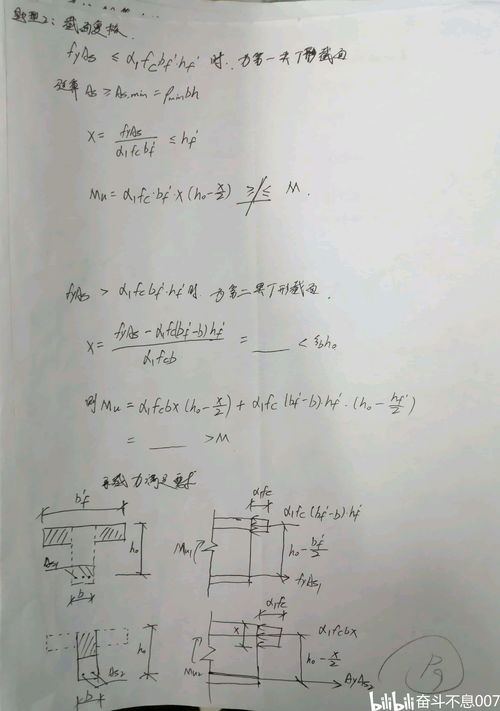 题型2：截面复核
fyAs ≤ α₁fcbf'hf' 时，为第一类T形截面
验算 As ≥ As,min = ρminbh
x = fyAs / α₁fcbf' ≤ hf'
Mu = α₁fc·bf'·x(h₀-x/2) ≥/≤ M.
fyAs > α₁fcbf'·hf' 时，为第二类T形截面.
x = fyAs - α₁fc(bf'-b)hf' / α₁fcb = ___ < ξbh₀
则Mu = α₁fcbx(h₀-x/2) + α₁fc(bf'-b)·hf'·(h₀-hf'/2)
= ___ >M
承载力满足要求
bf'
h₀
As₁
b
α₁fc
α₁fc(bf'-b)·hf'
Mu₁
h₀-bf'/2
fyAs₁
h₀
As₂
b
α₁fc
x
α₁fcbx
Mu₂
h₀-x/2
AyAs₂
P9
bilibili 奋斗不息007